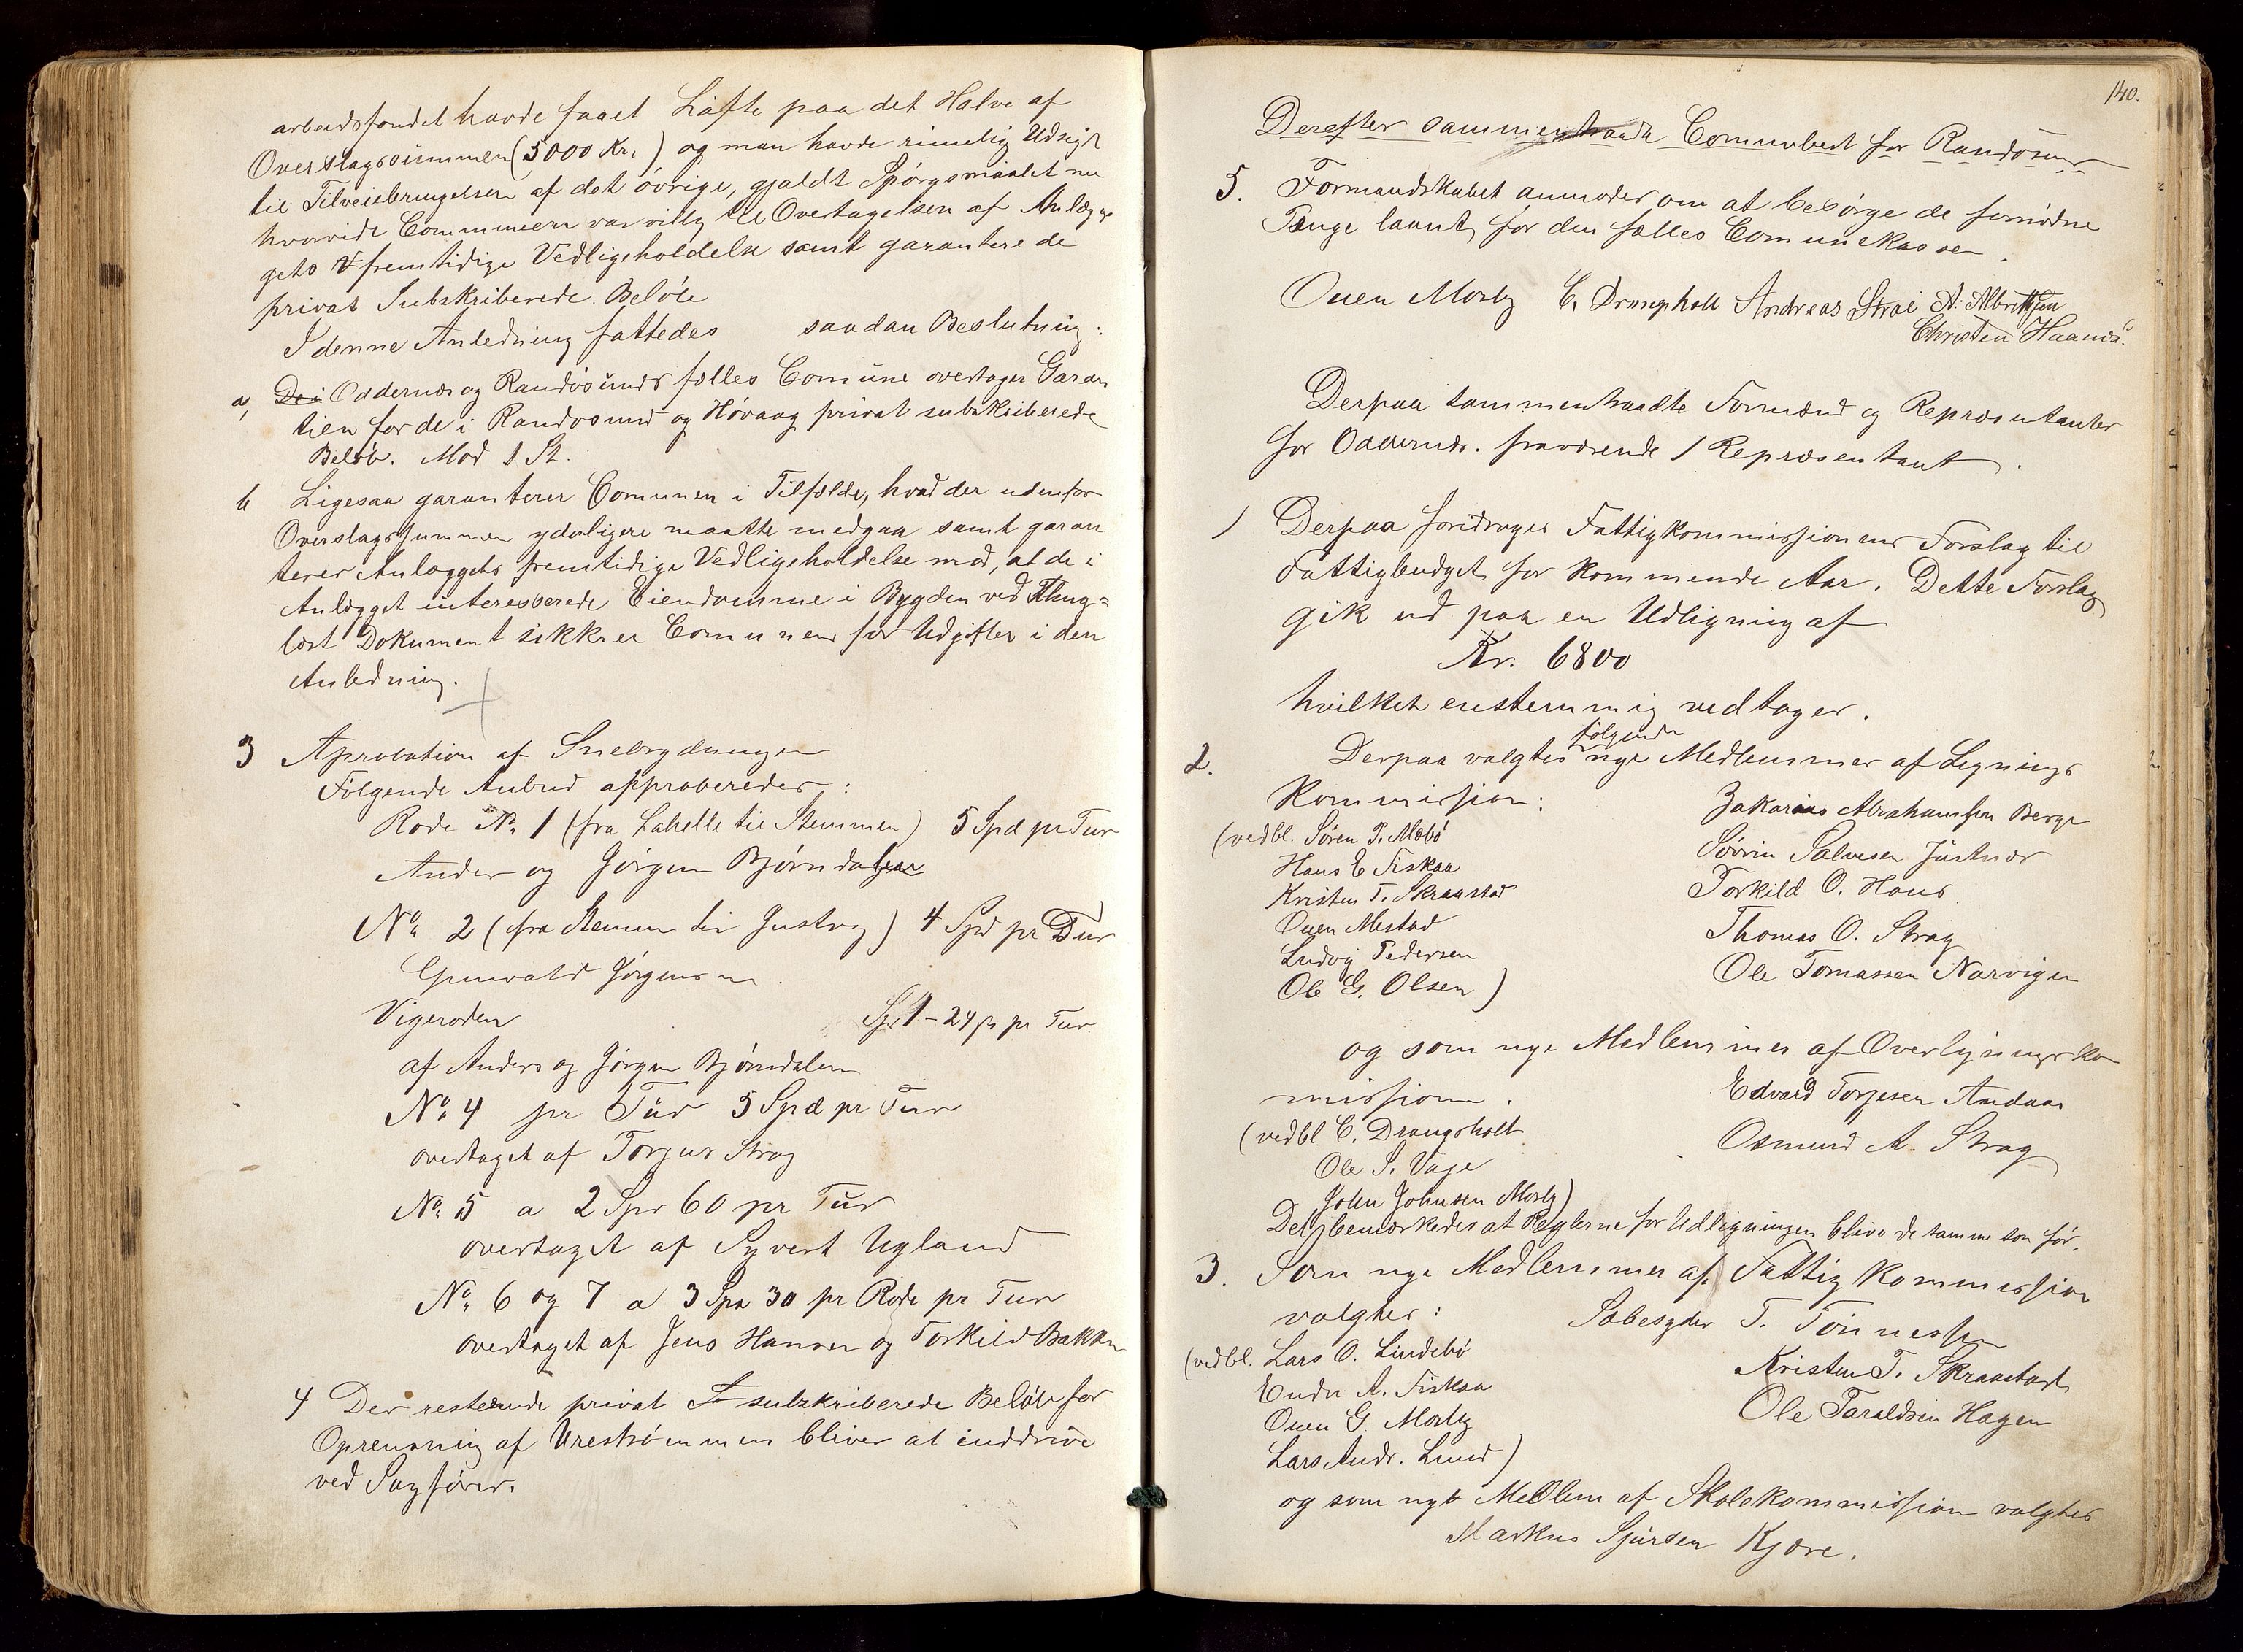 arbeidsfondet havde faaet Løfte paa det Halve af
Overslagssummen (5000 Kr.) og man havde rimelig Udsigt
til Tilveiebringelsen af det övrige, gjaldt Spörgsmaalet nu
hvorvidt Communen var villig til Overtagelsen af Anlæg
gets fremtidige Vedligeholdelse samt garantere de
privat Subskriberede Belöb
I denne Anledning fattedes saadan Beslutning:
a, Oddernes og Randösunds fælles Comune overtager Garan
tien for de i Randösund og Hövaag privat subskriberede
Belöb. Mod 1 St.
b Ligesaa garanterer Comunen i Tilfælde, hvad der udenfor
Overslagssummen yderligere maatte medgaa samt garan
terer Anlæggets fremtidige Vedligeholdelse mod, at de i
Anlægget interesserede Eiendomme i Bygden ved Thing=
læst Dokument sikkrer Comunen for Udgifter i den
Anledning.
3 Aprobation af Snebrydningen
Fölgende Anbud approberedes:
Rode No 1 (fra Lahelle til Stemmen) 5 Spd pr Tur
Anders og Jörgen Björndalen
No 2 (fra Stemmen til Justvig) 4 Spd pr Tur
Grunwald Jörgensen
Vigeroden Spd 1 - 24 sk pr Tur.
af Anders og Jörgen Björndalen
No 4 pr Tur 5 Spd pr Tur
overtaget af Torjus Strag
No 5 a 2 Spd 60 pr Tur
overtaget af Syvert Ugland
No 6 og 7 a 3 Spd 30 pr Rode pr Tur
overtaget af Jens Hansen og Torkild Bakken
4 De resterende privat subskriberede Belöb for
Oprensning af Ureströmmen bliver at inddrive
ved Sagförer.
140.
Derefter sammentraadte Comunebest for Randösund
5. Formandskabet anmodes om at besörge de fornödne
Penge laant for den fælles Comunekasse.
Ouen Mosby C. Drangsholt Andreas Strai A. Albretsen
Christen Haanæs
Derpaa sammentraadte Formænd og Repræsentanter
for Oddernes. fraværende 1 Repræsentant.
1 Derpaa foredroges Fattigkommissionens Forslag til
Fattigbudget for kommende Aar. Dette Forslag
gik ud paa en Udligning af
Kr. 6800
hvilket enstemmig vedtages.
2. Derpaa valgtes fölgende nye Medlemmer af Lignings
kommission:
Zakarias Abrahamsen Berge
(vedbl. Sören P. Mæbö
Sövrin Salvesen Justnes
Hans E Fiskaa
Torkild O. Haus
Kristen T. Skraastad
Thomas O. Strag
Ouen Mestad
Ole Tomassen Narvigen
Ludvig Pedersen
Ole G. Olsen)
og som nye Medlemmer af Overligningsko
missionen.
Edvard Torjesen Andaas
(vedbl. C. Drangsholt
Osmund A. Strag
Ole S. Vage
John Johnsen Mosby)
Det bemærkedes at Reglerne for Udligningen blive de samme som för.
3. Som nye Medlemmer af Fattigkommission
valgtes:
Sæbesyder T. Tönnessen
(vedbl. Lars O. Lindebö
Kristen T. Skraastad
Ender A. Fiskaa
Ole Taraldsen Hagen
Ouen G. Mosby
Lars Andr. Lund)
og som nyt Medlem af Skolekommission valgtes
Markus Sjursen Kjære.